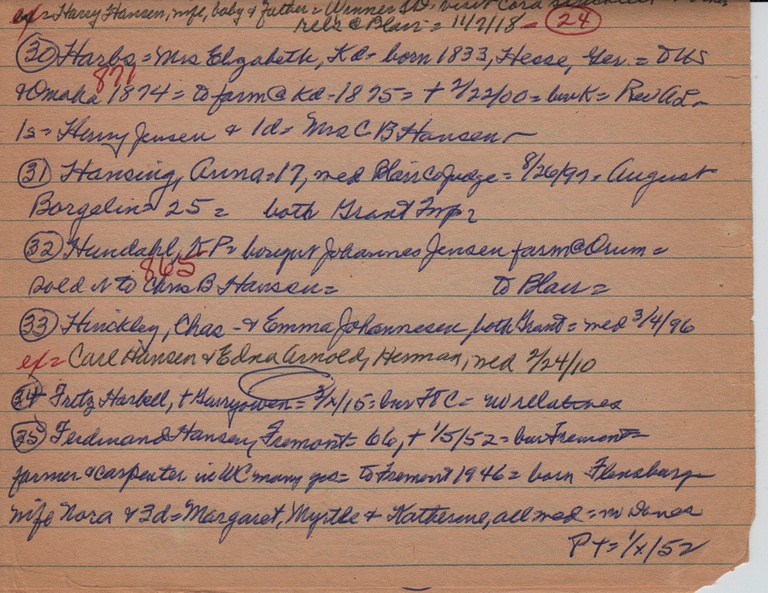 ex= Harry Hansen, wife, baby & father = visit Cora
rels @ Blair = 11/7/18 = 24
30 Harbs = Mrs Elizabeth, Kd = born 1833, Hesse, Ger. = to US
871
& Omaha 1874 = to farm @ Kd - 1875 = + 2/22/00 = bur K = Rev
1s = Henry Jensen & 1d = Mrs C B Hansen
31 Hansing, Anna = 17, med Blair Co Judge = 8/26/97 = August
Borgelin = 25 = both Grant Twp
32 Hundahl, K P = bought Johannes Jensen farm @ Orum =
865
sold it to Chris B Hansen = to Blair =
33 Hinckley, Chas - & Emma Johannesen, both Grant = med 3/4/96
ex= Carl Hansen & Edna Arnold, Herman, med 2/24/10
34 Fritz Harbell, + Garryowen = 3/x/15 = bur Ft C = no relatives
35 Ferdinand Hansen, Fremont = 66, + 1/5/52 = bur Fremont =
farmer & carpenter in WC many yrs = to Fremont 1946 = born Flensburg
wife Nora & 3d = Margaret, Myrtle & Katherine, all med =
PT = 1/x/52